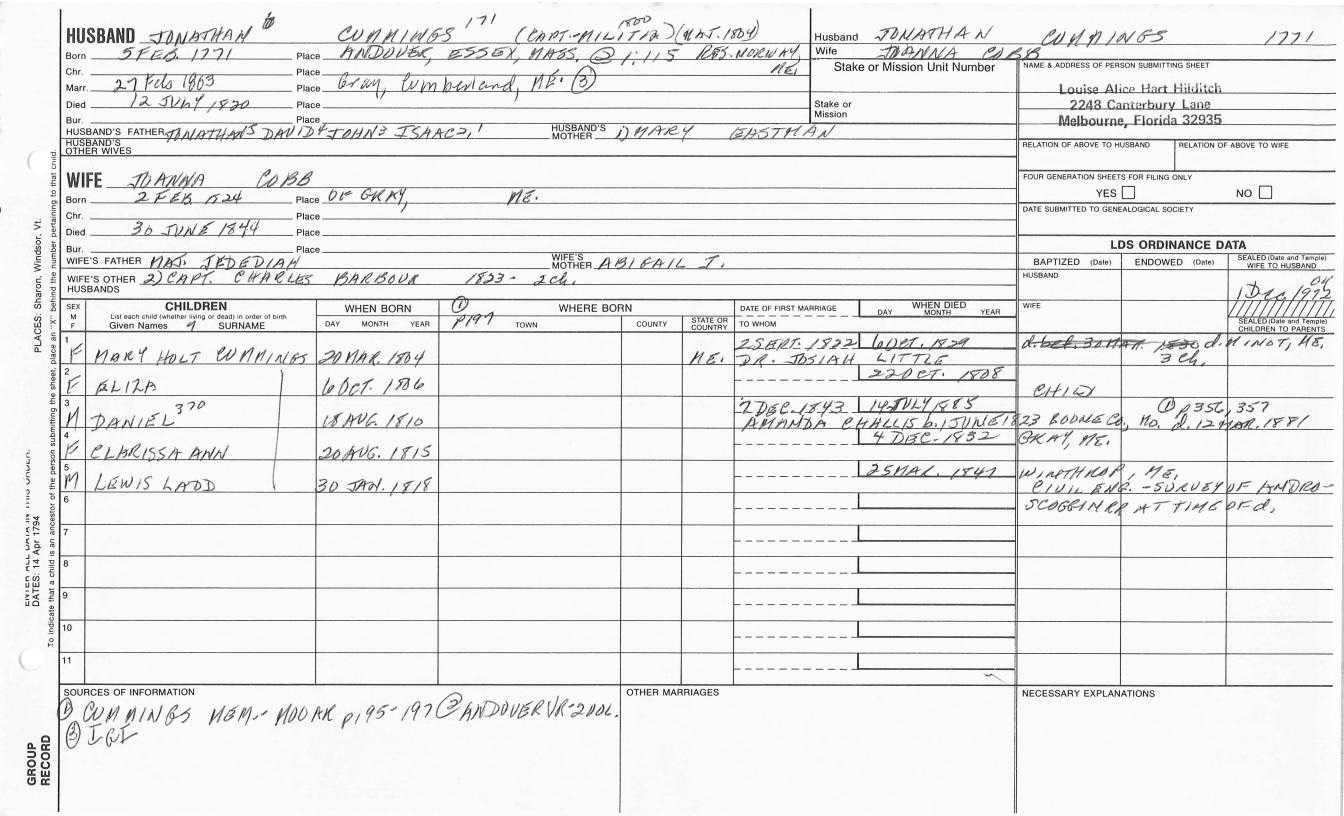 HUSBAND JONATHAN 6 CUMMINGS 171 (CAPT.-MILITIA 1800) (MAJ. 1804)
Born 5 FEB. 1771 Place ANDOVER, ESSEX, MASS. @ 1:115 RES. NORWAY, ME.
Chr. Place
Marr. 27 Feb 1803 Place Gray, Cumberland, ME. (3)
Died 12 JULY 1820 Place
Bur. Place
HUSBAND'S FATHER JONATHAN5 DAVID4 JOHN3 ISAAC2,1 HUSBAND'S MOTHER 1) MARY EASTMAN
HUSBAND'S OTHER WIVES
WIFE JOANNA COBB
Born 2 FEB Place OF GRAY, ME.
Chr. Place
Died 30 JUNE 1844 Place
Bur. Place
WIFE'S FATHER MAJ. JEDEDIAH WIFE'S MOTHER ABIGAIL J.
WIFE'S OTHER HUSBANDS 2) CAPT. CHARLES BARBOUR 1823- 2ch.
Husband JONATHAN CUMMINGS 1771
Wife JOANNA COBB
Stake or Mission Unit Number
Stake or Mission
NAME & ADDRESS OF PERSON SUBMITTING SHEET
Louise Alice Hart Hilditch
2248 Canterbury Lane
Melbourne, Florida 32935
RELATION OF ABOVE TO HUSBAND RELATION OF ABOVE TO WIFE
FOUR GENERATION SHEETS FOR FILING ONLY
YES NO
DATE SUBMITTED TO GENEALOGICAL SOCIETY
LDS ORDINANCE DATA
BAPTIZED (Date) ENDOWED (Date) SEALED (Date and Temple) WIFE TO HUSBAND
HUSBAND 1 Dec 1972
WIFE
SEALED (Date and Temple) CHILDREN TO PARENTS
SEX M F
CHILDREN
List each child (whether living or dead) in order of birth
Given Names SURNAME
WHEN BORN
DAY MONTH YEAR
(1) p197 WHERE BORN
TOWN COUNTY STATE OR COUNTRY
DATE OF FIRST MARRIAGE
TO WHOM
WHEN DIED
DAY MONTH YEAR
1 F MARY HOLT CUMMINGS 20 MAR. 1804 ME. 2 SEPT. 1822 6 OCT. 1829 d. bef. 30 MAR. 1830 d. MINOT, ME.
DR. JOSIAH LITTLE 3 ch.
2 F ELIZA 6 OCT. 1806 22 OCT. 1808 CHILD
3 M DANIEL 370 18 AUG. 1810 7 DEC. 1843 14 JULY 1885 (1) p356, 357
AMANDA CHALLIS b. 1 JUNE 1823 BOONE Co., Mo. d. 12 MAR. 1881
4 F CLARISSA ANN 20 AUG. 1815 4 DEC. 1832 GRAY, ME.
5 M LEWIS LADD 30 JAN. 1818 25 MAR. 1847 WINTHROP, ME.
CIVIL ENG. - SURVEY OF ANDRO-
SCOGGIN RR AT TIME OF d.
6
7
8
9
10
11
SOURCES OF INFORMATION
(1) CUMMINGS MEM.- MOOAR p195-197 (2) ANDOVER VR-2VOL.
(3) IGI
OTHER MARRIAGES
NECESSARY EXPLANATIONS
PLACES: Sharon, Windsor, Vt.
ENTER ALL DATA IN THIS ORDER:
DATES: 14 Apr 1794
To indicate that a child is an ancestor of the person submitting the sheet, place an "X" behind the number pertaining to that child.
GROUP RECORD